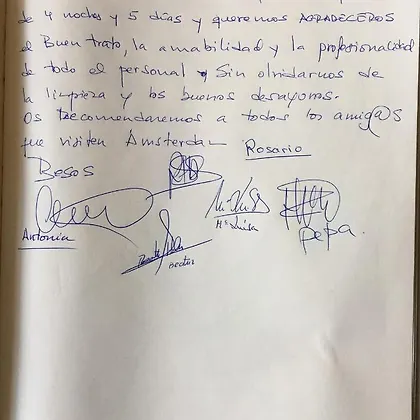 de 4 noches y 5 días y queremos AGRADECEROS
el Buen trato, la amabilidad y la profesionalidad
de todo el personal y Sin olvidarnos de
la limpieza y los buenos desayunos.
Os recomendaremos a todos los amig@s
que visiten Amsterdam
Rosario
Besos
Antonia
Mª Luisa
pepa.